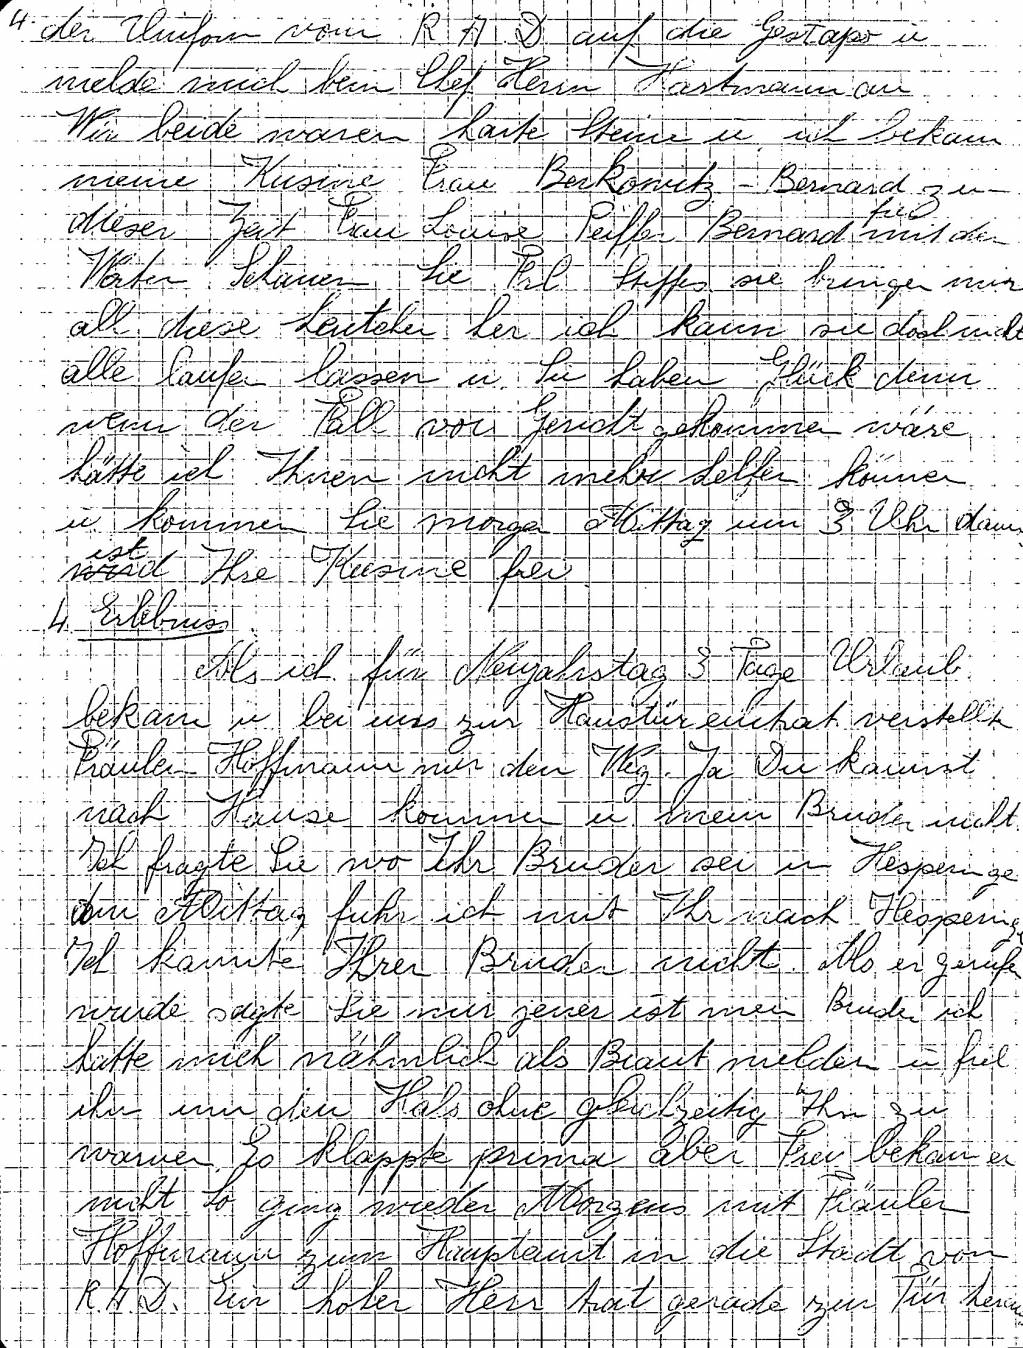 4. der Uniform vom R A D auf die Gestapo u
melde mich beim Chef Herrn Hartmann an
Wir beide waren harte Steine u. ich bekam
meine Kusine Frau Berkowitz - Bernard zu-
dieser Zeit Frau Louise Peiffer Bernard frei mit den
Wörter Schauen Sie Frl Steffes sie bringen mir
all diese Leutchen her ich kann sie doch nicht
alle laufen lassen u. Sie haben Glück denn
wenn der Fall vor Gericht gekommen wäre
hätte ich Ihnen nicht mehr helfen können
u. kommen Sie morgen Mittag um 3 Uhr dann
ist Ihre Kusine frei.
4. Erlebniss
Als ich für Neujahrstag 3 Tage Urlaub
bekam u bei uns zur Haustür eintrat verstellte
Fräulein Hoffmann mir den Weg. Ja Du kannst
nach Hause kommen u mein Bruder nicht.
Ich fragte Sie wo Ihr Bruder sei in Hesperinge
den Mittag fuhr ich mit Ihr nach Hesperinge
Ich kannte Ihren Bruder nicht. Als er gerufen
wurde sagte Sie mir jener ist mein Bruder ich
hatte mich nähmlich als Braut melden u fiel
ihn um den Hals ohne gleichzeitig Ihn zu
warnen. Es klappte prima aber Frei bekam er
nicht So ging wieder Morgens mit Fräulein
Hoffmann zum Hauptamt in die Stadt von
R.A.D. Ein hoher Herr trat gerade zur Tür heraus